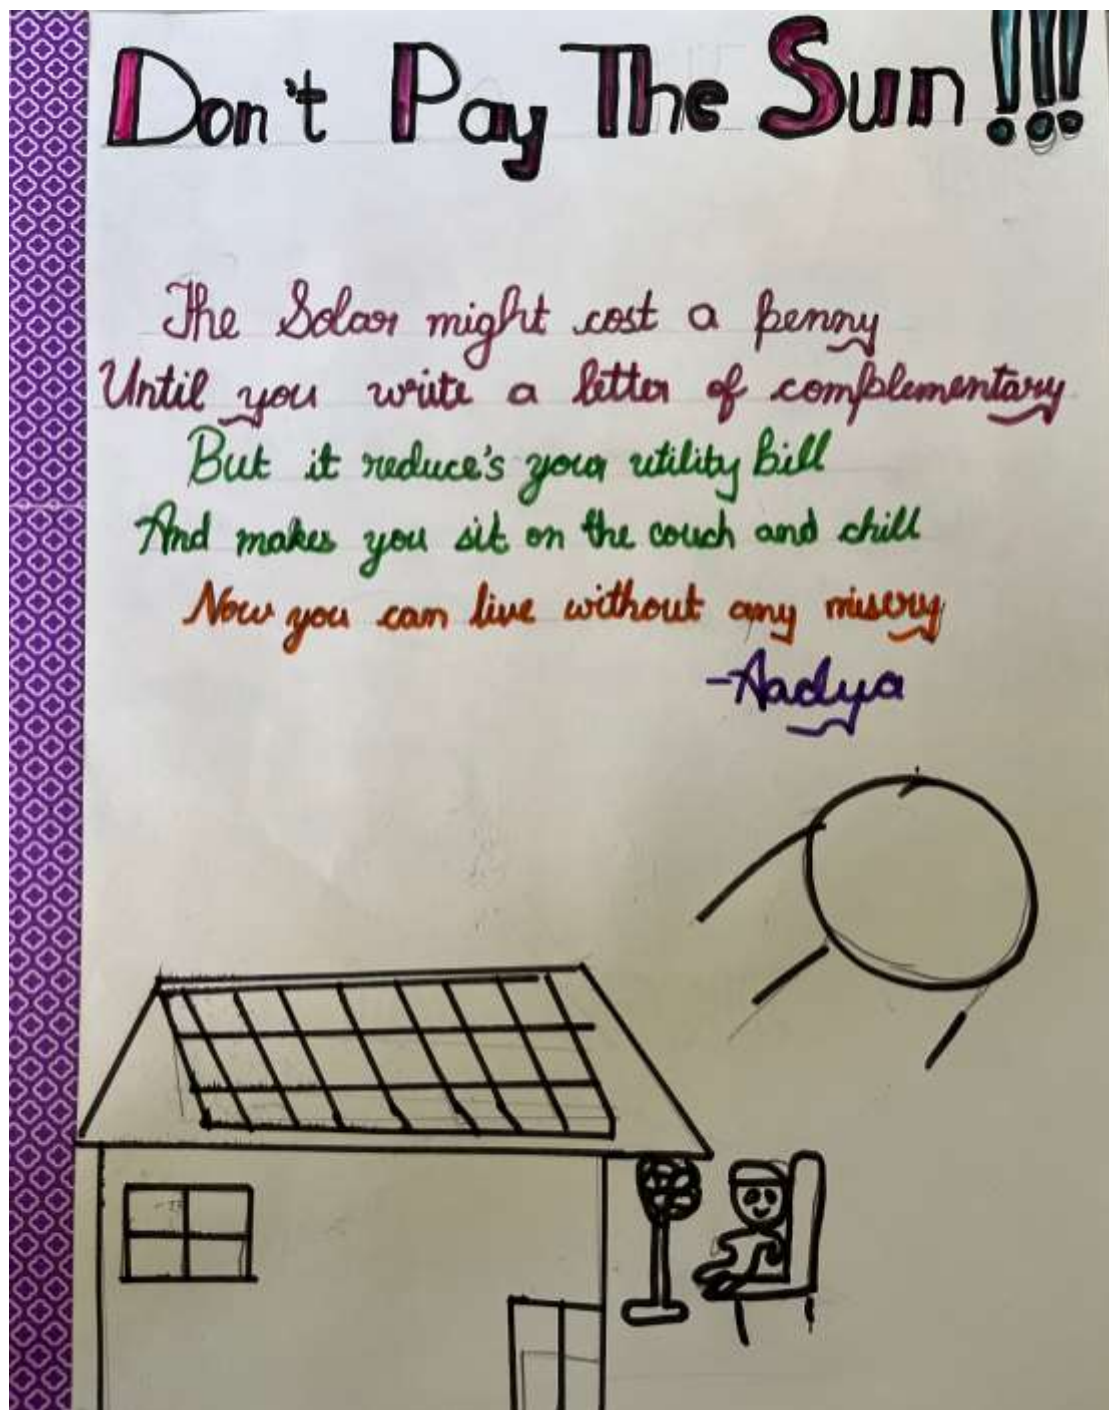 Don't Pay The Sun !!!
The Solar might cost a penny
Until you write a letter of complementary
But it reduce's your utility bill
And makes you sit on the couch and chill
Now you can live without any misery
-Aadya